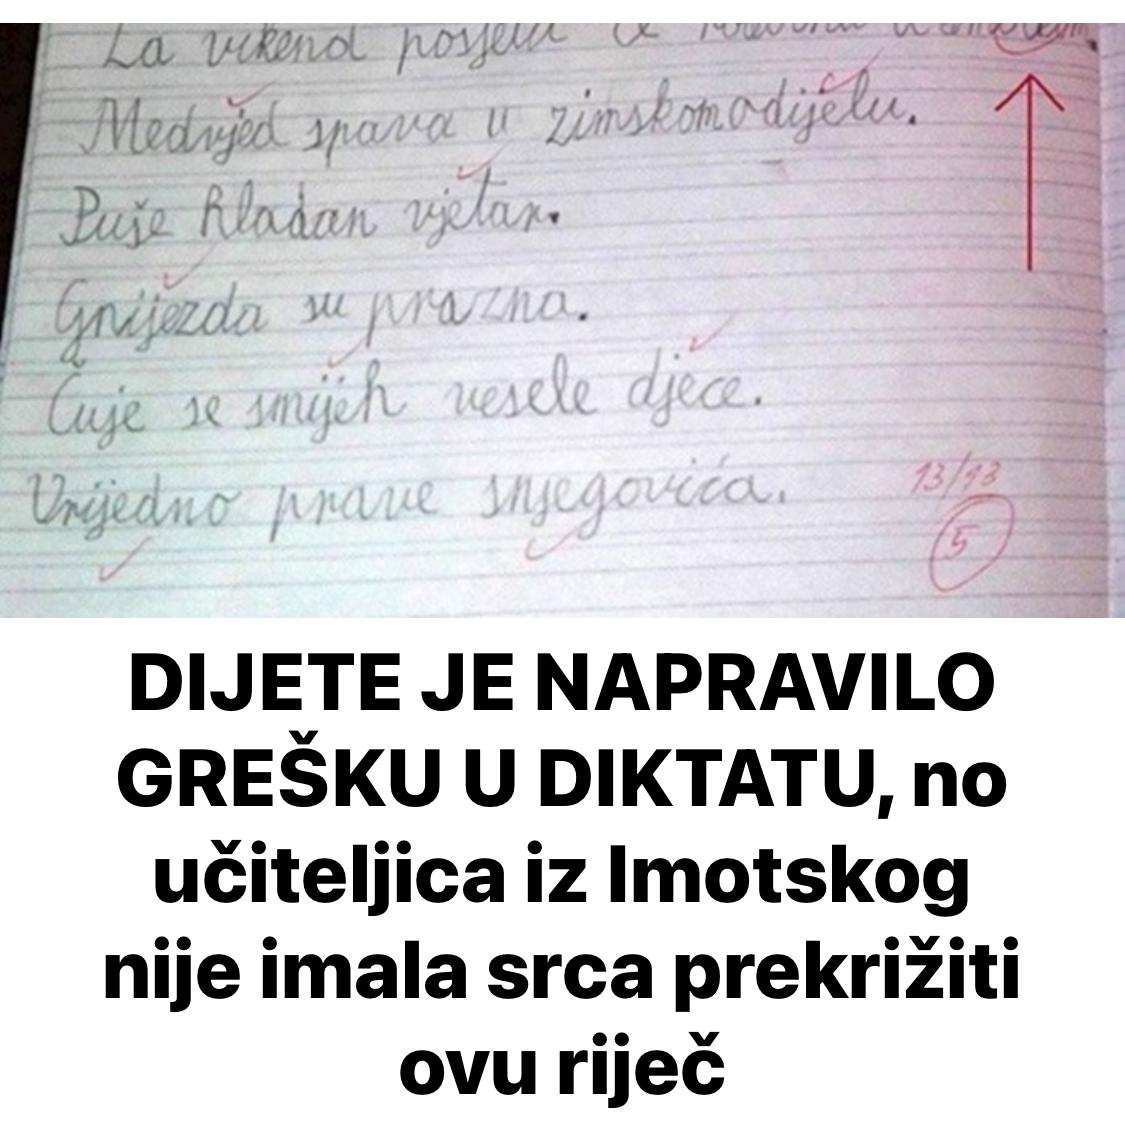 Za vikend
Medvjed spava u zimskom odijelu.
Puše hladan vjetar.
Gnijezda su prazna.
Čuje se smijeh vesele djece.
Vrijedno prave snjegovića.
13/13
5
DIJETE JE NAPRAVILO
GREŠKU U DIKTATU, no
učiteljica iz Imotskog
nije imala srca prekrižiti
ovu riječ